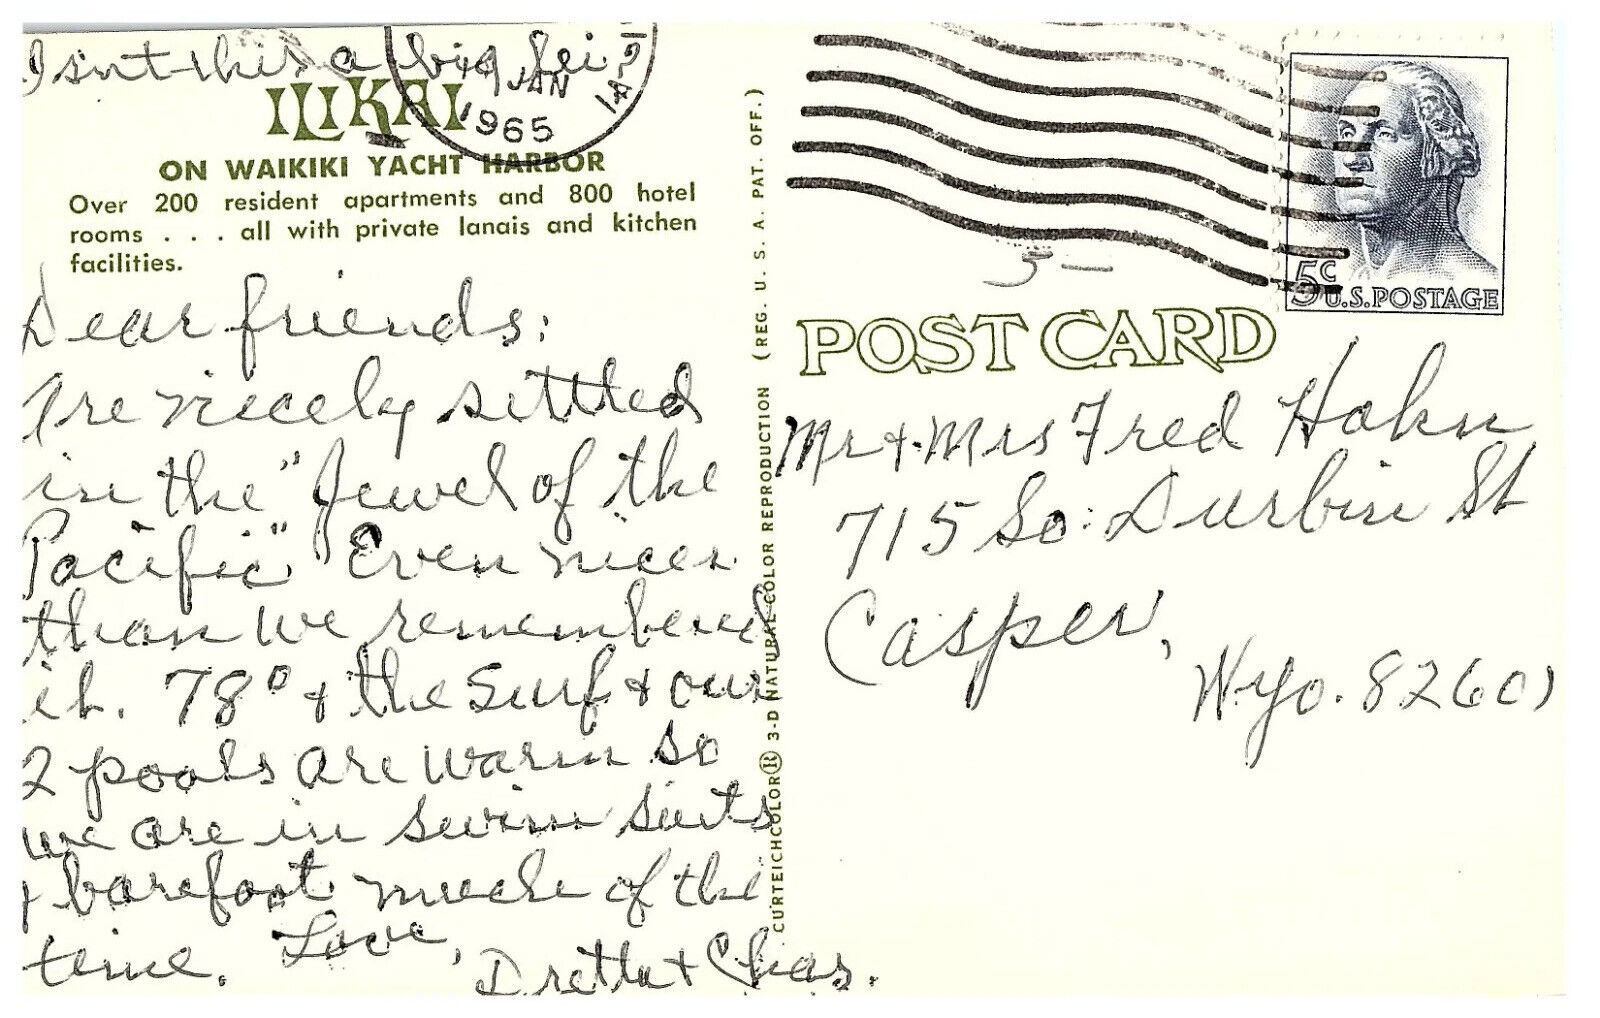 Isn't this a big lei
ILIKAI
ON WAIKIKI YACHT HARBOR
Over 200 resident apartments and 800 hotel
rooms . . . all with private lanais and kitchen
facilities.
Dear friends:
Are nicely settled
in the "Jewel of the
Pacific" Even nicer
than we remembered
it. 78° & the surf & our
2 pools are warm so
we are in swim suits
& barefoot much of the
time. Love,
Dretta & Chas.
CURTEICHCOLOR® 3-D NATURAL COLOR REPRODUCTION (REG. U. S. A. PAT. OFF.)
JAN
1965
5¢
U.S.POSTAGE
5—
POST CARD
Mr & Mrs Fred Hahn
715 So: Durbin St
Casper,
Wyo. 82601